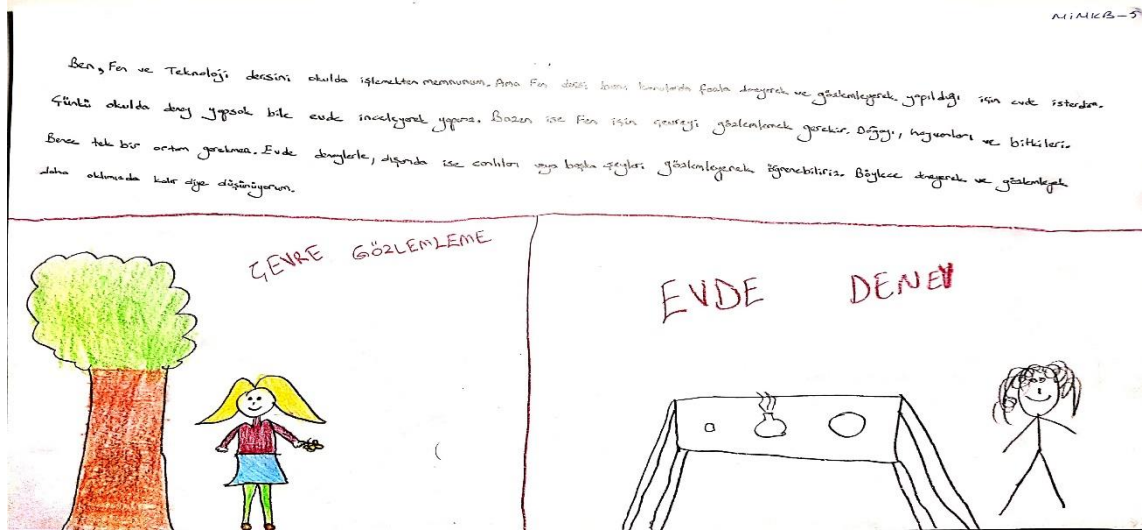 MİMKB-5
Ben, Fen ve Teknoloji dersini okulda işlemekten memnunum. Ama Fen dersi bazı konularda fazla deneyerek ve gözlemleyerek yapıldığı için evde isterdim.
Çünkü okulda deney yapsak bile evde inceleyerek yaparız. Bazen ise Fen için çevreyi gözlemlemek gerekir. Doğayı, hayvanları ve bitkileri.
Bence tek bir ortam gerekmez. Evde deneylerle, dışarıda ise canlıları veya başka şeyleri gözlemleyerek öğrenebiliriz. Böylece deneyerek ve gözlemleyerek
daha aklımızda kalır diye düşünüyorum.
ÇEVRE GÖZLEMLEME
EVDE DENEY